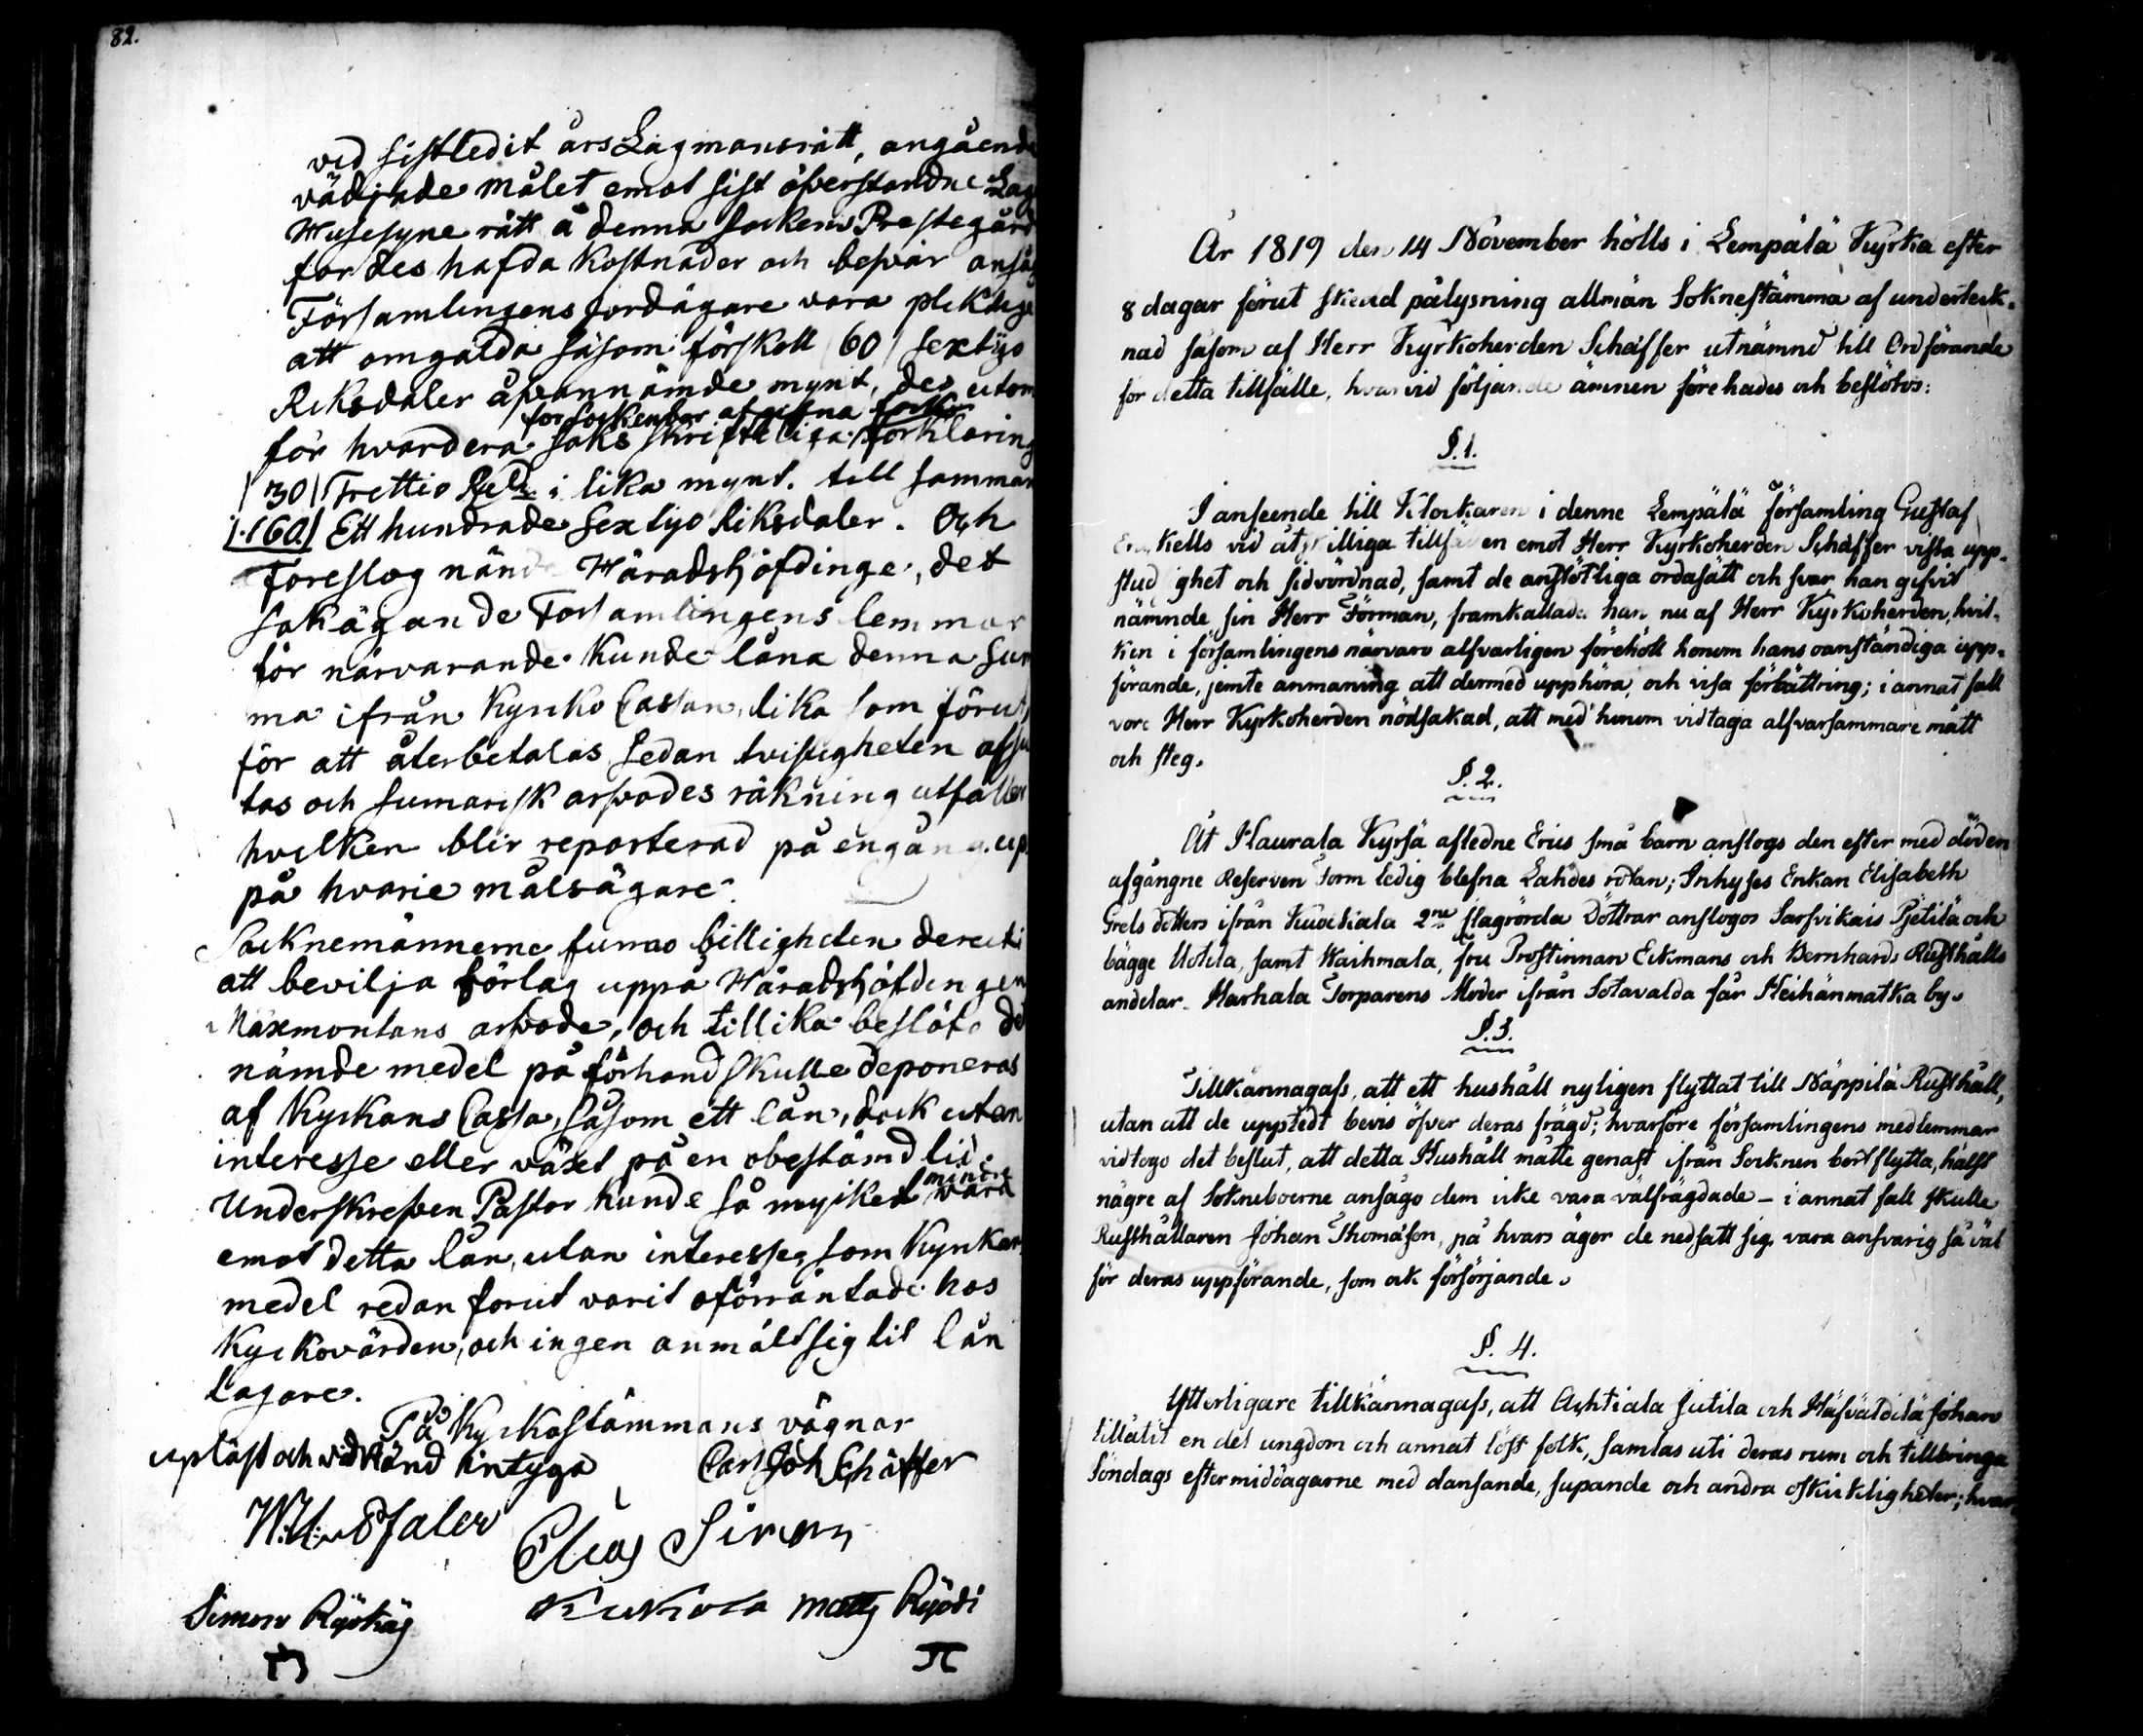 82.
vid sistledit års Lagmansrätt, angående
vädjade målet emot sist öfverstandne Lag
Husesyne rätt å denna Sockens Prestegård
för des hafda kostnader och besvär ansåg
Församlingens jordägare vara pliktige
att omgälda såsom förskott (60) sextijo
Riksdaler åfvannämde mynt, des utom
för Sockenbor afgifna
för hvardera saks skriftliga förklaring
(30) Trettio Rd. i lika mynt. till samman
(160) Ett hundrade Sextijo Riksdaler. Och
Föreslog Häradshöfdinge, det
sakägande Församlingens lemmar
för närvarande kunde låna denna Sum
ma ifrån Kyrko Cassan, lika som förut,
för att återbetalas sedan tvistigheten afslu
tas och sumarisk arfvodes räkning utfaller
hvilken blir reporterad på engång up
på hvarie målsägare.
Socknemännerne funno billigheten deruti
att bevilja förlag uppå Häradshöfdingen
Maxmontans arfvode, och tillika beslöto
nämde medel på förhand skulle deponeras
af Kyrkans Cassa, såsom ett lån, dock utan
interesse eller växt på en obestämd tid.
mindre
Underskrefven Pastor kunde så mycket vara
emot detta lån, utan interesse, som Kyrkans
medel redan förut varit oförräntade hos
Kyrkovärden, och ingen anmält sig till lån
tagare.
På Kyrkostämmans vägnar
upläst och vidkänd intyga Carl Joh Schäffer
Elias Simon
Simon Ryökäs Kukola Matts Ryödi
År 1819 den 14 November hölls i Lempälä Kyrka efter
8 dagar förut skedd pålysning allmän Soknestämma af underteck-
nad såsom af Herr Kyrkoherden Schäffer utnämnd till Ordförande
för detta tillfälle, hvarvid följande ämnen förehades och beslötos:
§. 1.
I anseende till Klockaren i denne Lempälä församling Gustaf
vid åtskilliga tillfällen emot Herr Kyrkoherden Schäffer vista upp-
studsighet och sidvördnad, samt de anstötliga ordasätt och svar han gifvit
nämnde sin Herr Förman, framkallades han nu af Herr Kyrkoherden, hvil-
ken i församlingens närvaro alfvarligen förehöll honom hans oanständiga upp-
förande, jemte anmaning att dermed upphöra och visa förbättring; i annat fall
vore Herr Kyrkoherden nödsakad, att med honom vidtaga alfvarsammare mått
och steg.
§. 2.
Åt Haurala Kyrsä afledne Erics små barn anslogs den efter med döden
afgångne Reserven Torm ledig blefna Lahdes rotan; Inhyses Enkan Elisabeth
Grels dotters ifrån Kuokkala 2ne slagrörda Döttrar anslogos Sarfvikais Pjetilä och
bägge Uotila, samt Waihmala, fru Prostinnan Eckmans och Bernhards Rusthålls
andelar. Harhala Torparens Moder ifrån Sotavalda får Heihänmatka by.
§. 3.
Tillkännagafs, att ett hushåll nyligen flyttat till Näppilä Rusthåll,
utan att de upptedt bevis öfver deras frägd; hvarföre församlingens medlemmar
vidtogo det beslut, att detta Hushåll måtte genast ifrån Socknen bortflytta, hälst
nägre af Sokneboerne ansågo dem icke vara välfrägdade – i annat fall skulle
Rusthållaren Johan Thomason, på hvars ägor de nedsatt sig, vara ansvarig så väl
för deras uppförande, som ock försörjande.
§. 4.
Ytterligare tillkännagafs, att Ahtiala Jutila och Häfväldilä Johan
tillåtit en del ungdom och annat löst folk, samlas uti deras rum och tillbringa
Söndags eftermiddagarne med dansande, supande och andra oskickligheter; hvar